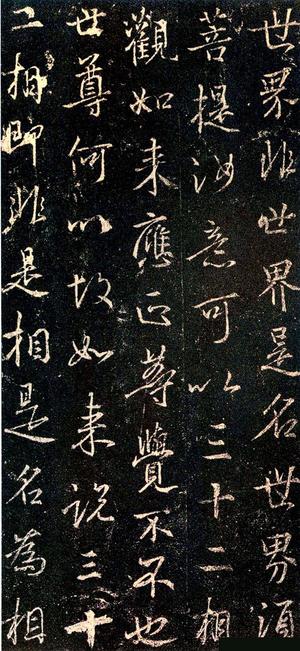 世界非世界是名世界須
菩提汝意可以三十二相
觀如来應正等覺不不也
世尊何以故如来説三十
二相即非是相是名為相